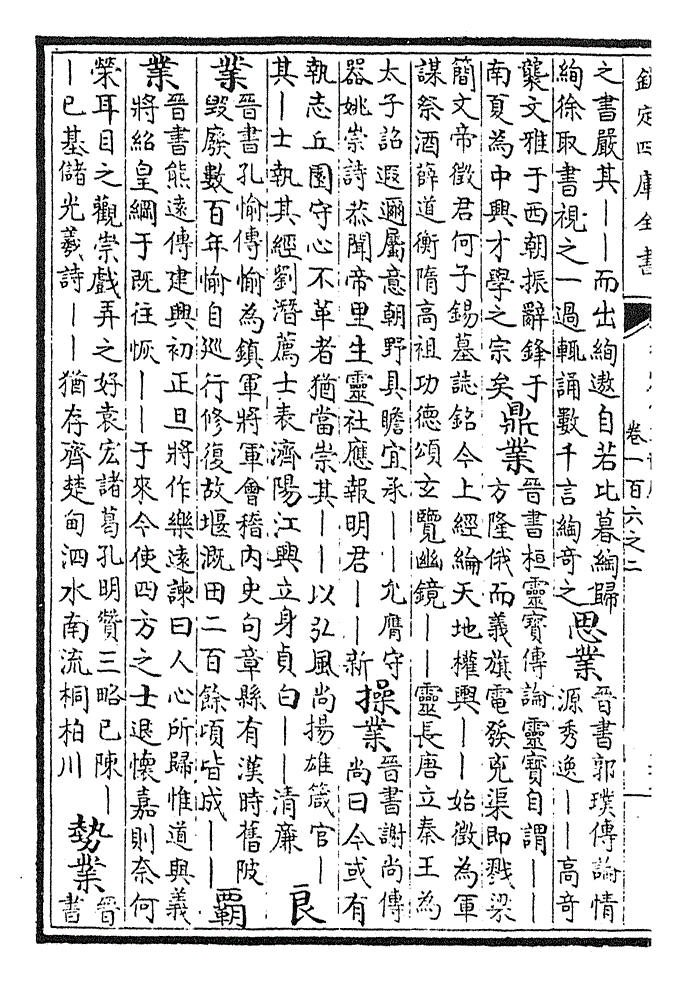 欽定四庫全書
卷一百六之二
之書嚴其——而出絢遨自若比暮絢歸
絢徐取書視之一過輒誦數千言絢奇之
思業
晉書郭璞傳論情
源秀逸——高奇
襲文雅于西朝振辭鋒于
南夏為中興才學之宗矣
鼎業
晉書桓靈寶傳論靈寶自謂——
方隆俄而義旗電發克渠即戮梁
簡文帝徵君何子錫墓誌銘今上經綸天地權興——始徵為軍
謀祭酒薛道衡隋高祖功德頌玄覽幽鏡——靈長唐立秦王為
太子詔遐邇屬意朝野具瞻宜承——允膺守
器姚崇詩恭聞帝里生靈社應報明君——新
操業
晉書謝尚傳
尚曰今或有
執志丘園守心不革者猶當崇其——以弘風尚揚雄箴官—
其—士執其經劉潛薦士表濟陽江興立身貞白——清廉
良
業
晉書孔愉傳愉為鎮軍將軍會稽內史句章縣有漢時舊陂
毀廢數百年愉自巡行修復故堰溉田二百餘頃皆成——
霸
業
晉書熊遠傳建興初正旦將作樂遠諫曰人心所歸惟道與義
將紹皇綱于既往恢——于來今使四方之士退懷嘉則奈何
榮耳目之觀崇戲弄之好袁宏諸葛孔明贊三略已陳—
—已基儲光羲詩——猶存齊楚甸泗水南流桐柏川
勢業
晉
書